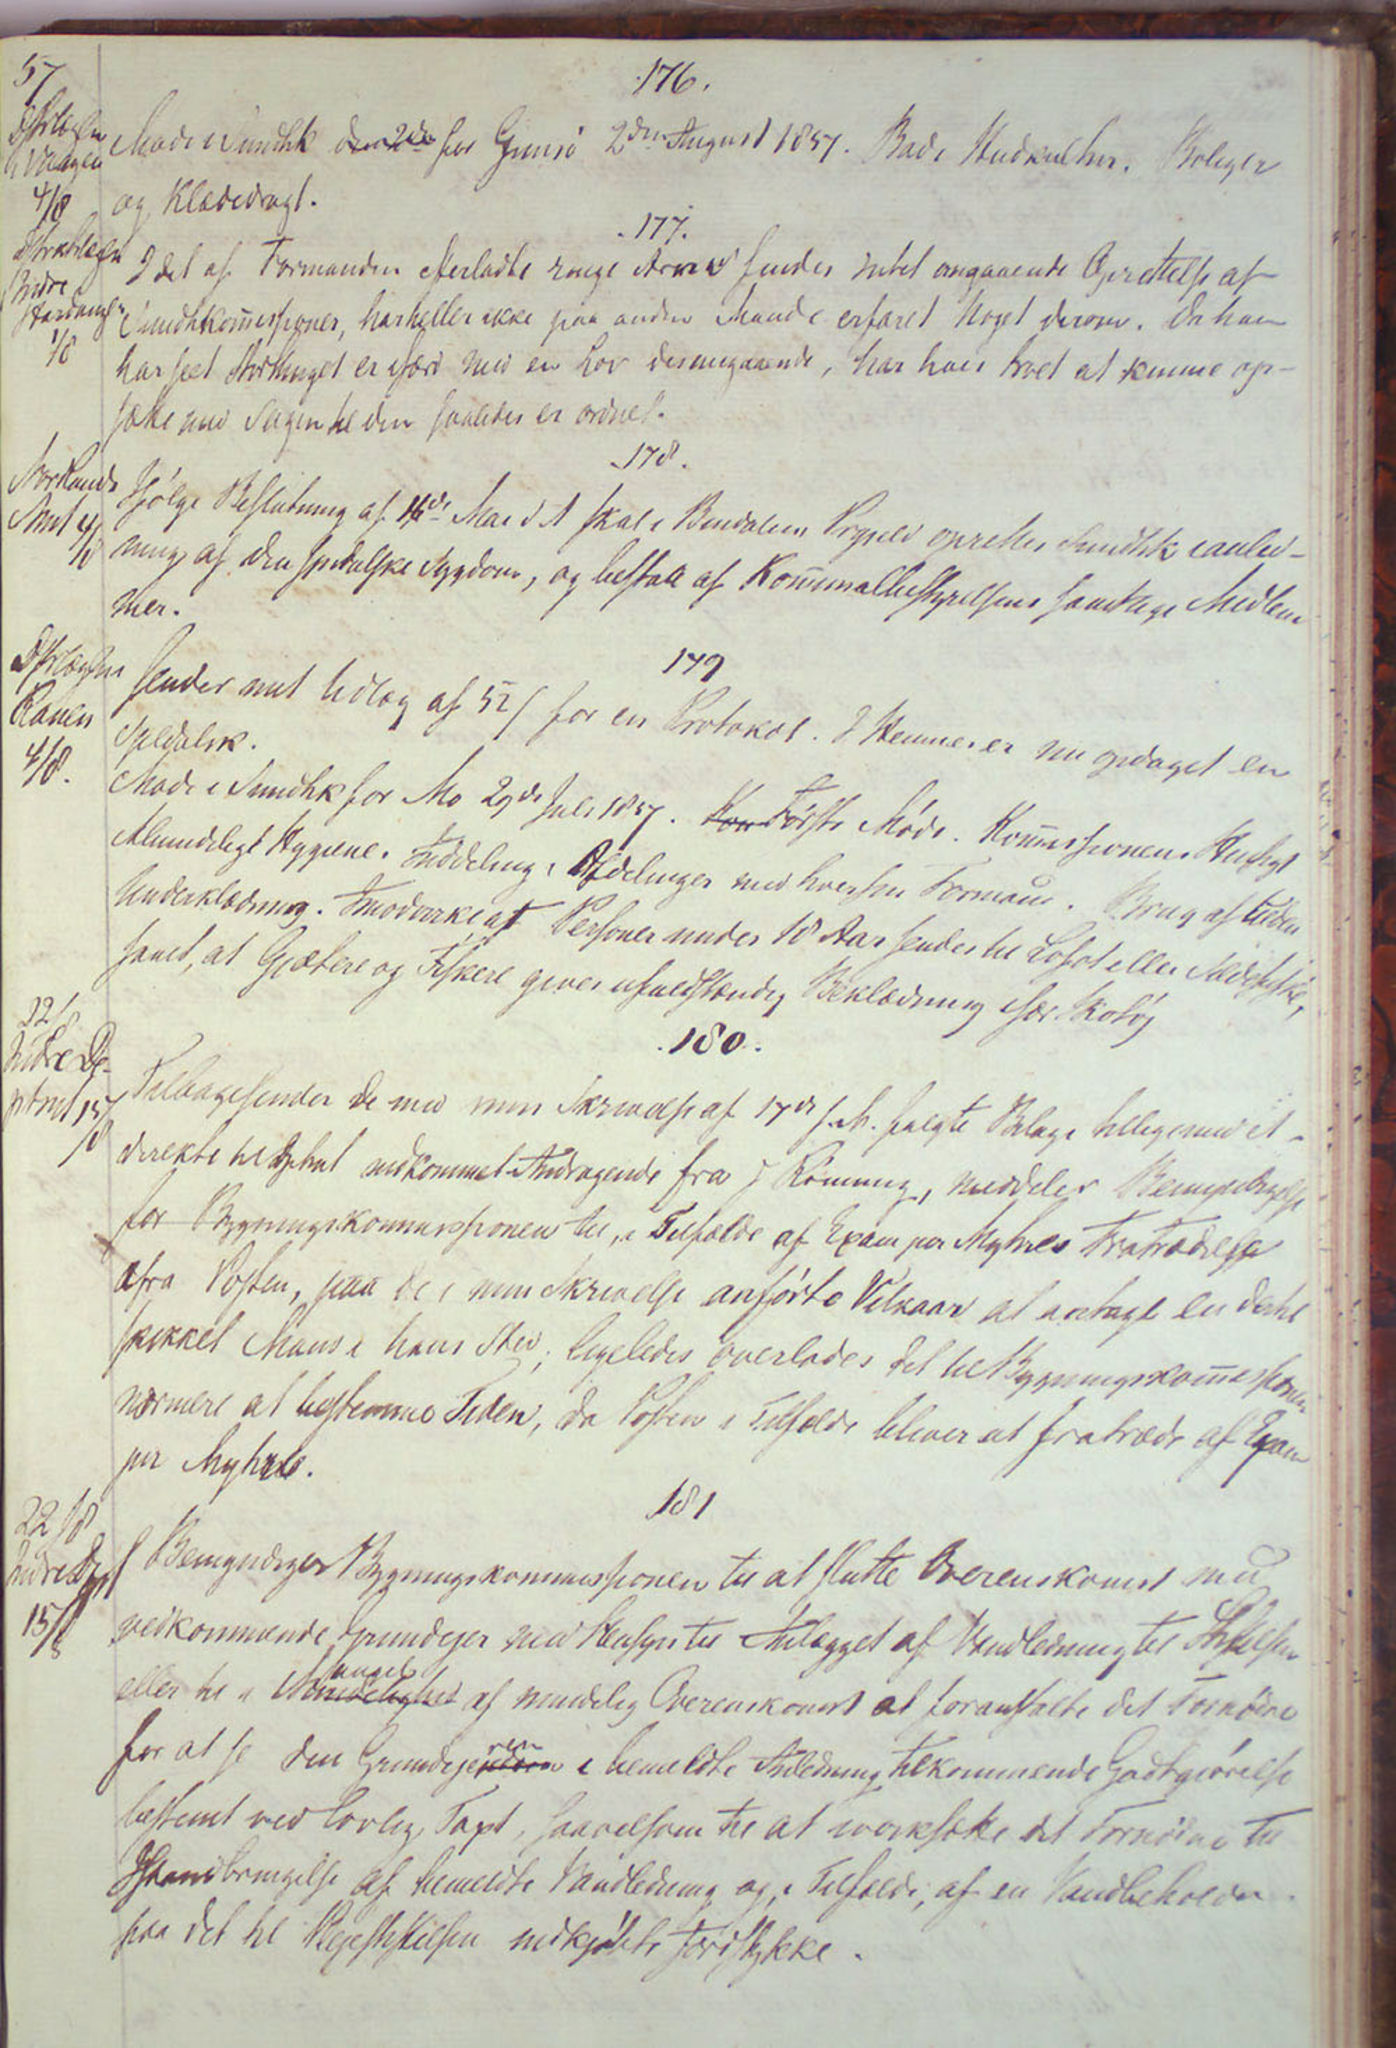 57
176.
Dstrlægen
i Vaagen
4/8
Møde i Sundhk den 2de for Gimsø 2den August 1857. Bade Hudkultur. Boliger
og Klædedragt.
177.
Dstrktslægen
Indre
Hardanger
1/8
I det af Formanden efterladte Arkiv findes intet angaaende Oprettelse af
Sundhkommissioner, har heller ikke paa anden Maade erfaret Noget derom. Da han
har seet Storthinget er ifærd med en Lov desangaaende, har han troet at kunne op-
sætte med Sagen til den saaledes er ordnet.
178.
Nordlands
Amt 4/8
Ifølge Beslutning af 16de Mai d A skal i Bindalens Prgjeld oprettes Sundhk i anled-
ning af den spedalske Sygdom, og bestaa af Kommunalbestyrelsens samtlige Medlem
mer.
179
Dstrlægen
Ranen
4/8.
Sender mit Udlæg af 52 / for en Protokol. I Hemnes er nu opdaget en
Spedalsk.
Møde i Sundhk for Mo 29de Juli 1857. Kom Første Møde. Kommissionens Hensigt
Almindeligt Hygiene. Inddeling i Afdelinger med hver sin Formand. Brug af ulden
Underklædning. Modvirke at Personer under 18 Aar sendes til Lofot eller Sildefiske,
samt, at Gjætere og Fiskere gives ufuldstændig Beklædning især Skotøj
180.
22/8
Indre De-
ptmt 15/8
Tilbagesender de med min Skrivelse af 17de f. M. fulgte Bilage tilligemed et
direkte til Dptmt indkommet Andragende fra J Rønning, meddeler Bemyndigelse
for Bygningskommissionen til, i Tilfælde af Exam jur Myhres Fratrædelse
fra Posten, paa de i min Skrivelse anførte Vilkaar at antage en dertil
skikket Mand i hans Sted; ligeledes overlades det til Bygningskommissionen
nærmere at bestemme Tiden, da Posten i Tilfælde bliver at fratræde af Exam
jur Myhre.
181
22/8
Indre Dpt
15/8
Bemyndiger Bygningskommissionen til at slutte Overenskomst med
vedkommende Grundejer med Hensyn til Anlægget af Vandledning til Stiftelsen
eller til i Mangel af mindelig Overenskomst at foranstalte det Fornødne
for at se den Grundejeren i bemeldte Anledning tilkommende Godtgjørelse
bestemt ved lovlig Taxt, saavelsom til at iværksætte det Fornødne til
Istandbringelse af bemeldte Vandledning og, i Tilfælde, af en Vandbeholder
paa det til Plejestiftelsen indkjøbte Jordstykke.